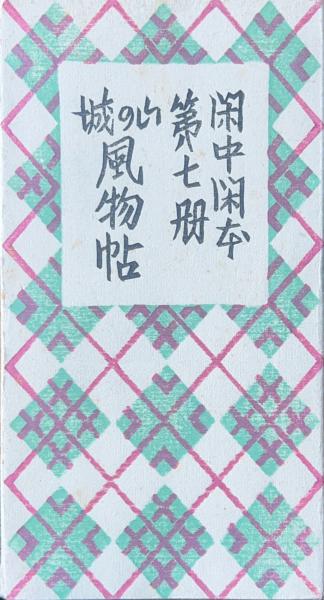 閑中閑本
第七册
山の城風物帖